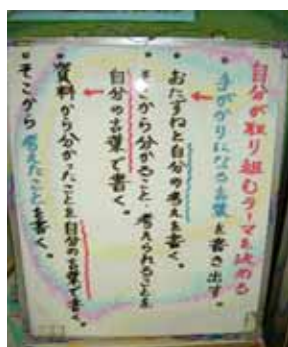 自分が取り組むテーマを決める
手がかりになる言葉を書き出す。
・おたずねと自分の考えを書く。
・そこから分かること、考えられることを
自分の言葉で書く。
・資料から分かったことを自分の言葉で書く。
・そこから考えたことを書く。